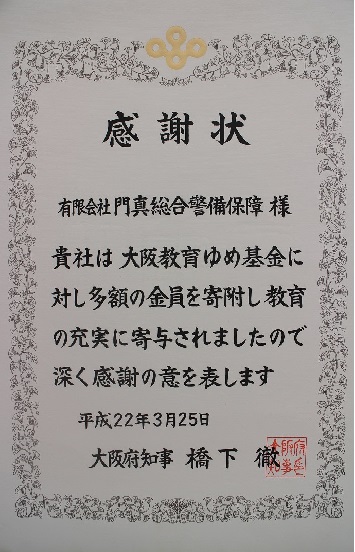 感謝状
有限会社門真総合警備保障 様
貴社は大阪教育ゆめ基金に
対し多額の金員を寄附し教育
の充実に寄与されましたので
深く感謝の意を表します
平成22年3月25日
大阪府知事 橋下 徹